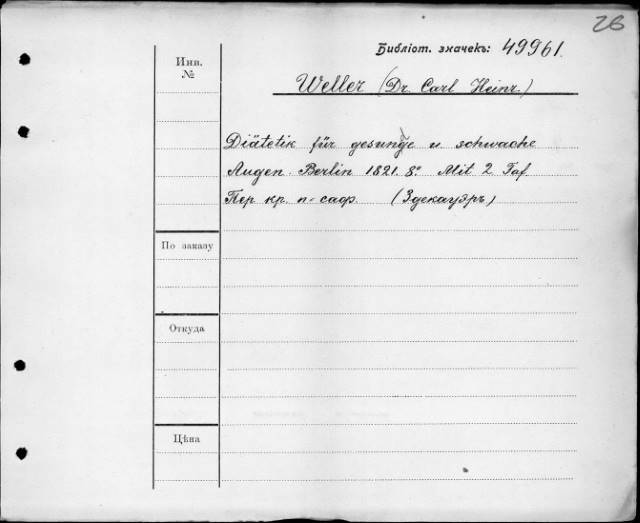 26
Библіот. значекъ: 49961.
Инв.
№
Weller (Dr. Carl Heinr.)
Diätetik für gesunde u. schwache
Augen. Berlin 1821. 8º Mit 2 Taf.
Пер кр. п-саф. (Здекауэръ)
По заказу
Откуда
Цѣна